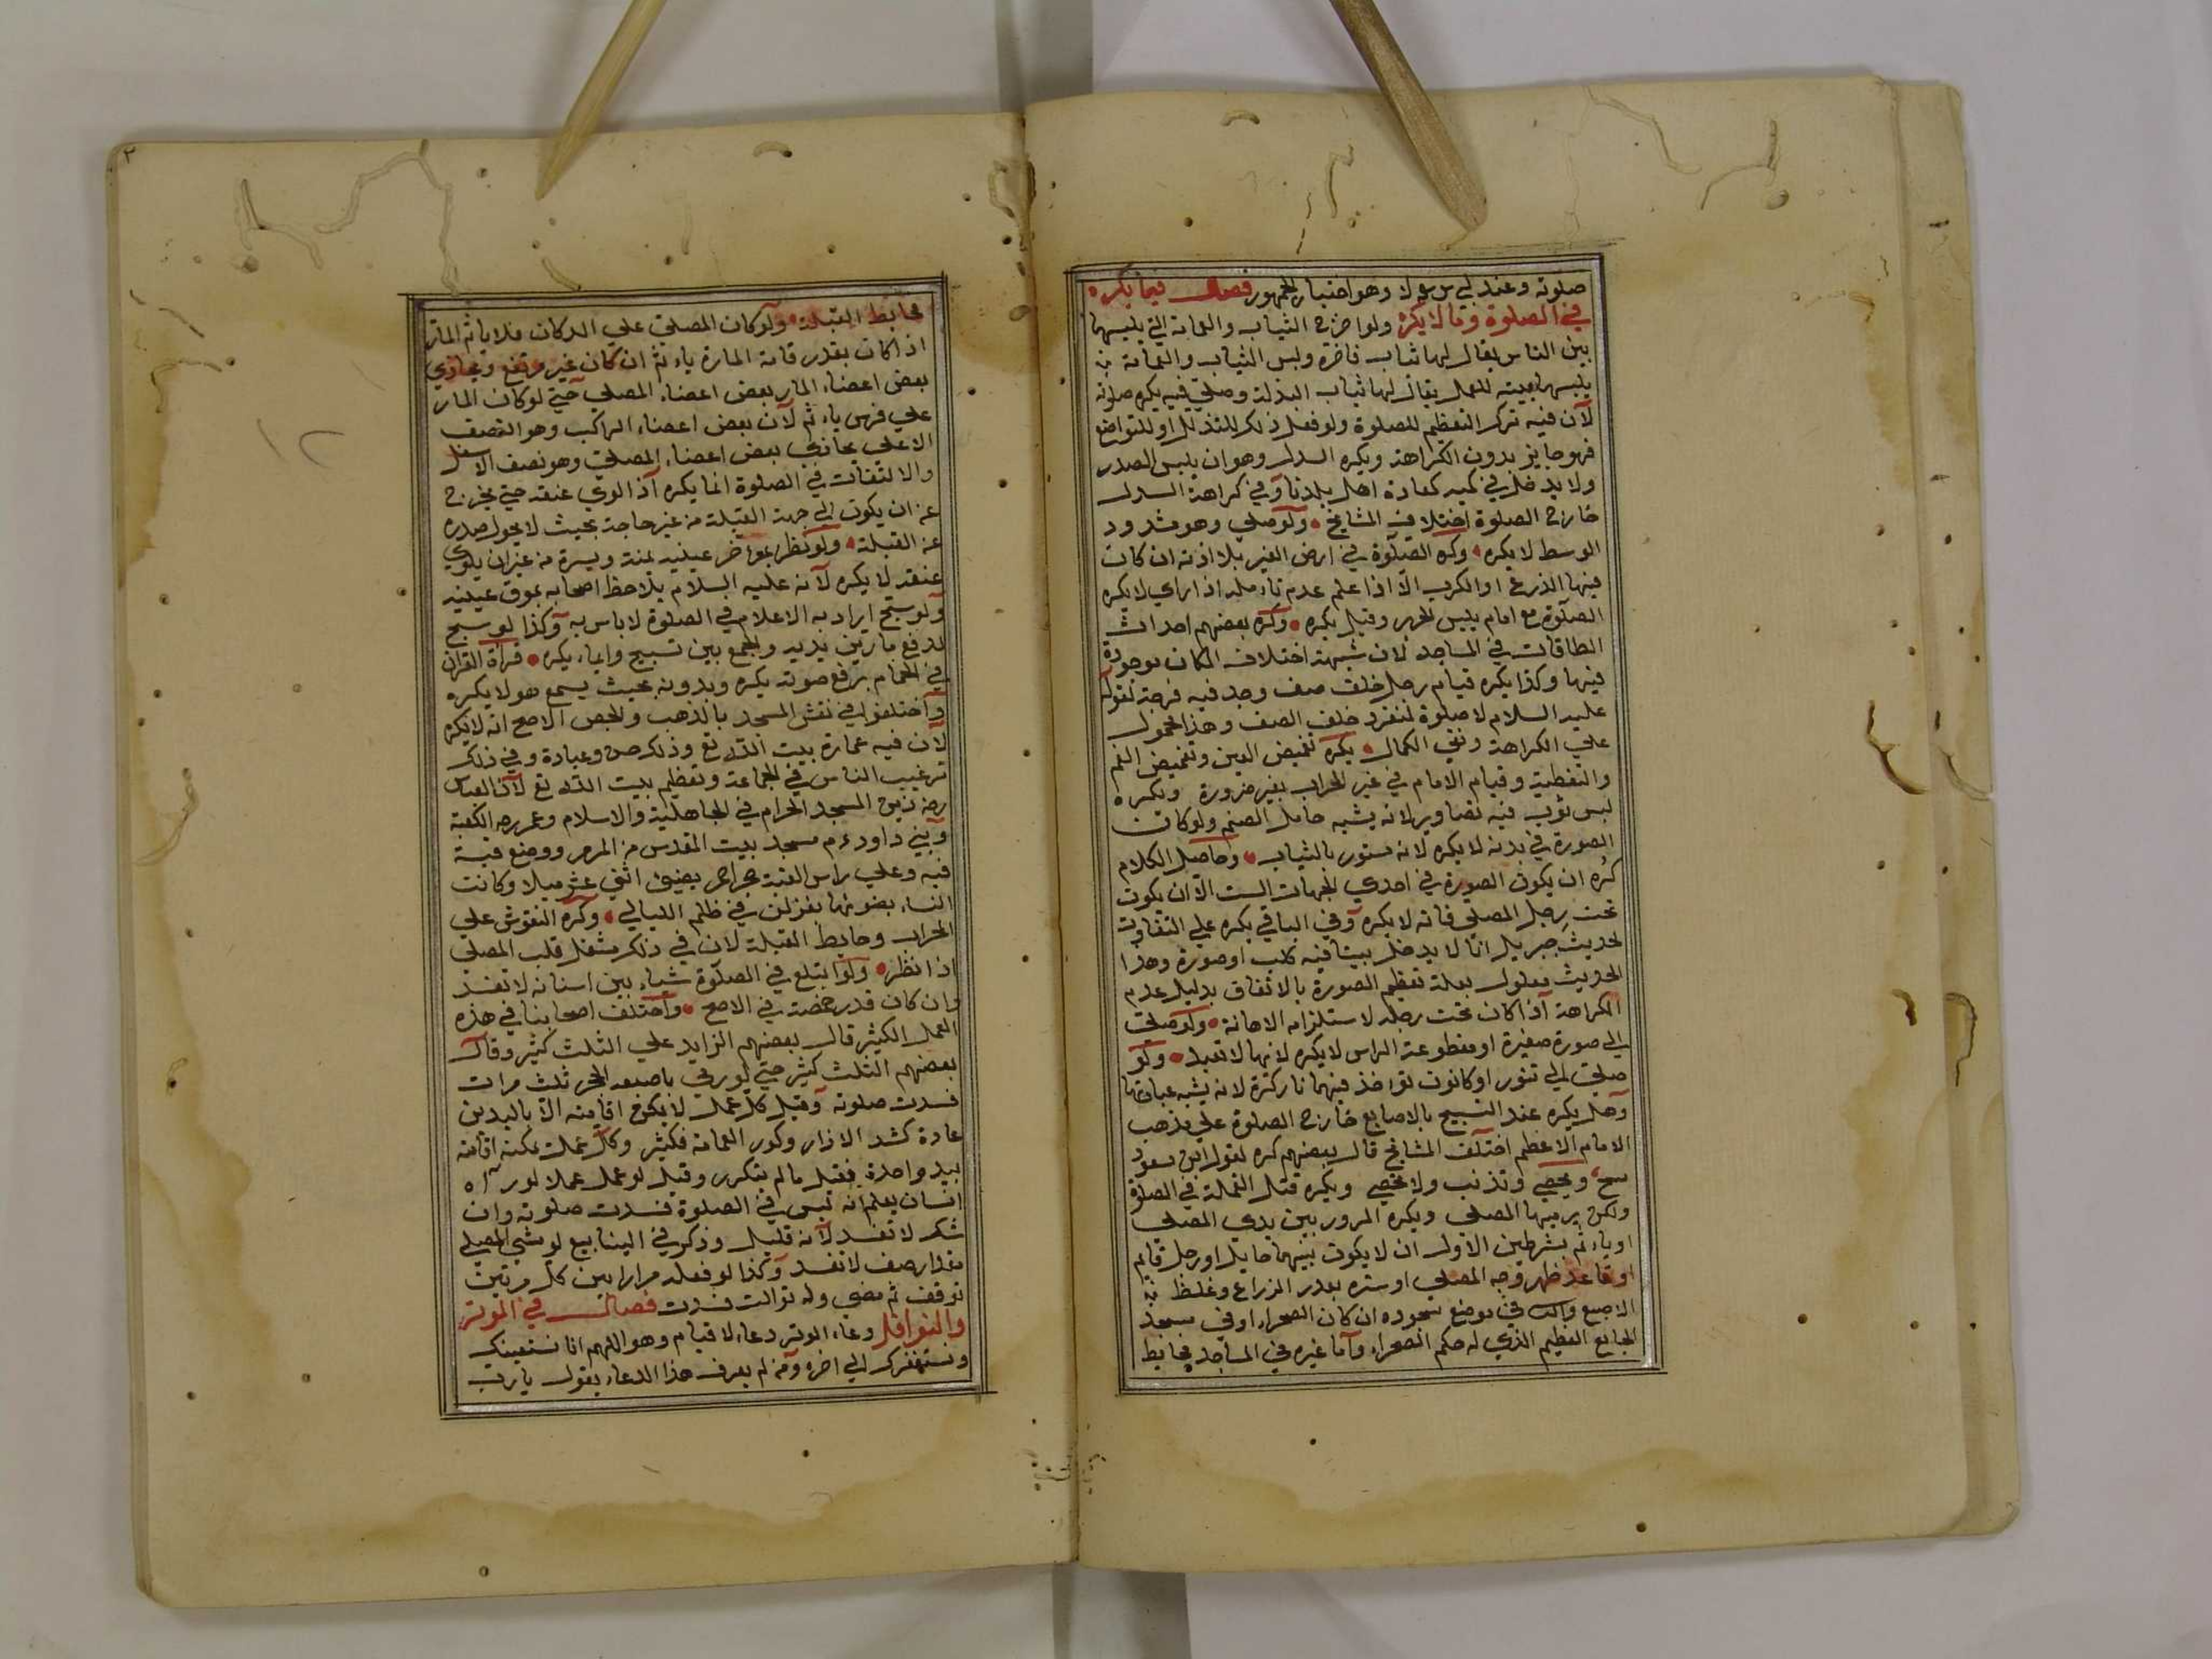 صلوته وعند ابي س رع لا وهو اختيار الجمهور فصل فيما يكره
في الصلوة وما لا يكره ولو اخرج الثياب والعمامة التي يلبسها
بين الناس يقال لها ثياب فاخرة ولبس الثياب والعمامة
يلبسها ببيته للعمل يقال لها ثياب البذلة وصلي فيه يكره صلوته
لان فيه ترك التعظيم للصلوة ولو فعل ذلك للتذلل او للتواضع
فهو جايز بدون الكراهة ويكره السدل وهو ان يلبس الصدر
ولا يدخل في كميه كعادة اهل بلدنا وفي كراهة السدل
خارج الصلوة اختلاف المشايخ ولو صلي وهو مشدود
الوسط لا يكره وكره الصلوة في ارض الغير بلا اذنه ان كان
فيها الذرع او الكرب الا اذا علم عدم تاءمله اذا راي لا يكره
الصلوة مع امام يلبس الحرير وقيل يكره وكره بعضهم احداث
الطاقات في المساجد لان شبهة اختلاف المكان موجودة
فيها وكذا يكره قيام رجل خلف صف وجد فيه فرجة لقوله
عليه السلام لا صلوة لمنفرد خلف الصف وهذا محمول
علي الكراهة ونفي الكمال يكره تغميض العين وتغميض الفم
والتغطية وقيام الامام في غير المحراب بغير ضرورة ويكره
لبس ثوب فيه تصاوير لانه يشبه حامل الصنم ولو كانت
الصورة في بدنه لا يكره لانه مستور بالثياب وحاصل الكلام
كره ان يكون الصورة في احدي الجهات الست الا ان يكون
تحت رجل المصلي فانه لا يكره وفي الباقي يكره علي التفاوت
لحديث جبريل انا لا يدخل بيتا فيه كلب او صورة وهذا
الحديث معلول بعلة تعظيم الصورة بالاتفاق بدليل عدم
الكراهة اذا كان تحت رجله لاستلزام الاهانة ولو صلي
الي صورة صغيرة او مقطوعة الراس لا يكره لانها لا تعبد ولو
صلي الي تنور او كانون توء اخذ فيهما نار كره لانه يشبه عبادتها
وهل يكره عند التسبيح بالاصابع خارج الصلوة علي مذهب
الامام الاعظم اختلف المشايخ قال بعضهم كره لقول ابن مسعود
سبح ويحصي وتذنب ولا تحصي ويكره قتل النملة في الصلوة
ولكن يرميها المصلي ويكره المرور بين يدي المصلي
او ياءثم بشرطين الاول ان لا يكون بينهما حايل او رجل قايم
او قاعد ظهر وجه المصلي او ستره بقدر الزراع وغلظ
الاصبع والثا في موضع سجوده ان كان الصحراء او في مسجد
الجامع العظيم الذي له حكم الصحراء واما غيره في المساجد بحايط
٢
بحايط القبلة ولو كان المصلي علي الدكان فلا ياثم المار
اذا كان بقدر قامة المارة ياءثم ان كان غير مرتفع ويحاذي
بعض اعضاء المار بعض اعضاء المصلي حتي لو كان المار
علي فرس ياءثم لان بعض اعضاء الراكب وهو النصف
الاعلي يحاذي بعض اعضاء المصلي وهو نصف الاسفل
والالتفات في الصلوة انما يكره اذا لوي عنقه حتي يخرج
عن ان يكون الي جهة القبلة من غير حاجة بحيث لا يحول صدره
عن القبلة ولو نظر بمواخر عينيه يمنة ويسرة من غير ان يلوي
عنقه لا يكره لانه عليه السلام يلاحظ اصحابه بموق عينيه
ولو سبح ايراد به الاعلام في الصلوة لا باس به وكذا لو سبح
لدفع مار بين يديه والجمع بين تسبيح وايماء يكره قراة القران
في الحمام برفع صوته يكره وبدونه بحيث يسمع هو لا يكره
واختلفوا في نقش المسجد بالذهب والجص الاصح انه لا يكره
لان فيه عمارة بيت الله تع وذلك حسن وعبادة وفي ذلك
ترغيب الناس في الجماعة وتعظيم بيت الله تع لان العباس
رضه زين المسجد الحرام في الجاهلية والاسلام وعمر رضه الكعبة
وبني داود ءم مسجد بيت المقدس من المرمر ووضع قبة
فيه وعلي راس القبة حجر احمر يضيئ اثني عشر ميلا وكانت
النساء بضوئها يغزلن في ظلم الليالي وكره النقوش علي
المحراب وحايط القبلة لان في ذلك مشغل قلب المصلي
اذا نظر ولو ابتلع في الصلوة شياء بين اسنانه لا تفسد
وان كان قدر حمصة في الاصح واختلف اصحابنا في هذه
العمل الكثير قال بعضهم الزايد علي الثلث كثير وقال
بعضهم الثلث كثير حتي لو رقي باصبعه الحجر ثلث مرات
فسدت صلوته وقيل كل عمل لا يمكن اقامته الا باليدين
عادة كشد الازار وكور العمامة فكثير وكل عمل يمكنه اقامته
بيد واحدة فقليل ما لم يتكرر وقيل لو عمل عملا لو رآه
انسان يعلم انه ليس في الصلوة فسدت صلوته وان
شك لا تفسد لانه قليل وذكر في الينابيع لو مشي المصلي
مقدار صف لا تفسد وكذا لو فعله مرارا بين كل مرتين
توقف ثم مضي ولو توالت فسدت فصل في الوتر
والنوافل دعاء الوتر دعاء لا قيام وهو اللهم انا نستعينك
ونستغفرك الي اخره ومن لم يعرف هذا الدعاء يقول يا رب
١٢